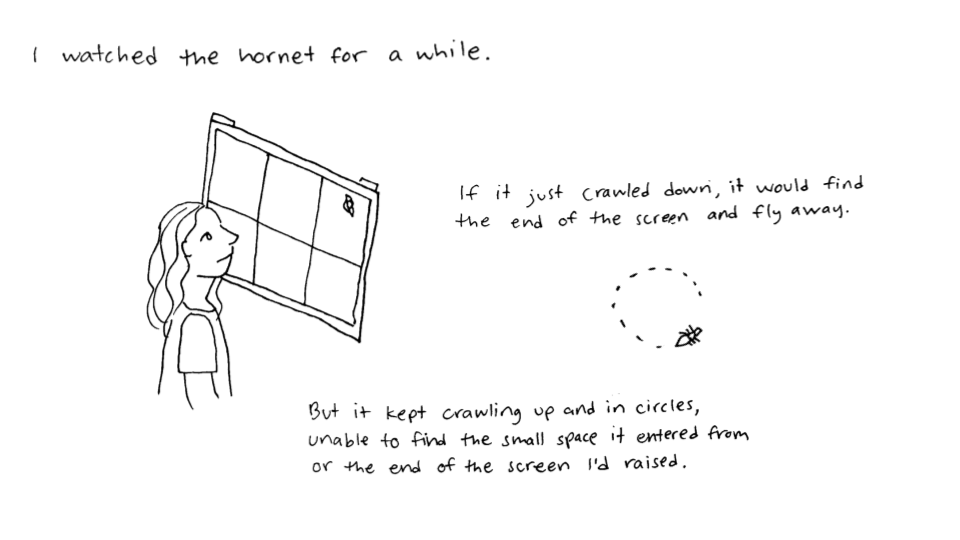 I watched the hornet for a while.
If it just crawled down, it would find
the end of the screen and fly away.
But it kept crawling up and in circles,
unable to find the small space it entered from
or the end of the screen I'd raised.